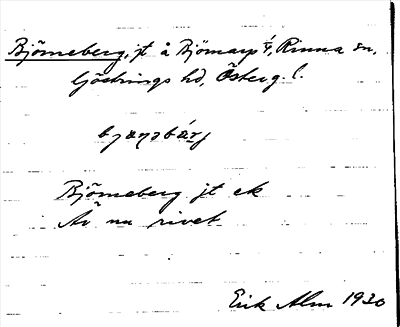 Björneberg, jt å Björnarp i, Rinna sn,
Göstrings hd, Österg. l.
Björneberg jt ek
Äv nu rivet
Erik Alm 1930